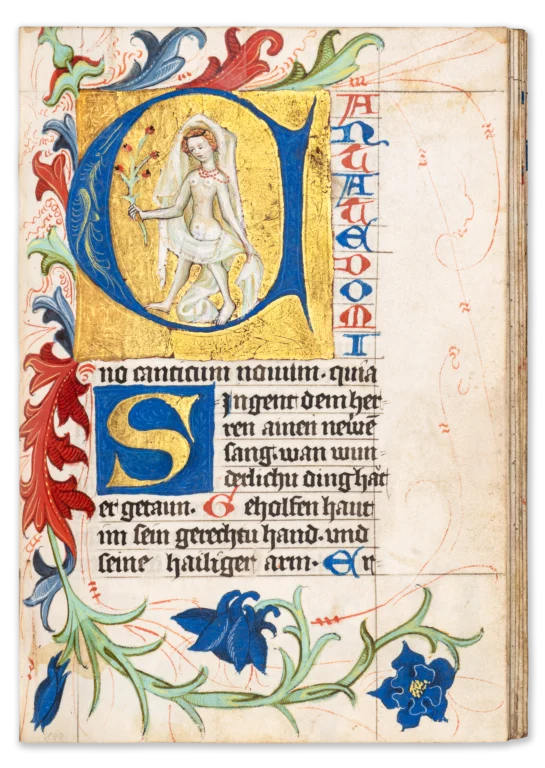 CANTATE DOMI
no canticum nouum. quia
SIngent dem her
ren ainen newē
sang. wan wun
derlichu ding hāt
er getaun. Geholfen haut
im sein gerechtu hand. vnd
seine hailiger arm. Er